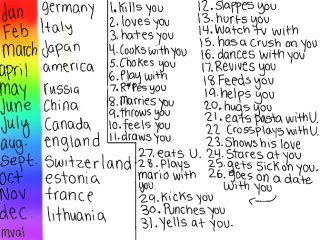 Jan germany
Feb Italy
march Japan
april america
may russia
June China
July Canada
aug. england
Sept. Switzerland
oct estonia
Nov france
dec. lithuania
mvai
1. Kills you
2. loves you
3. hates you
4. Cooks with you
5. Chokes you
6. Play with
7. R*pes you
8. Marries you
9. throws you
10. feels you
11. draws you
12. Slappes you
13. hurts you
14. Watch TV with
15. has a crush on you
16. dances with you
17. Revives you
18. Feeds you
19. helps you
20. hugs you
21. eats pasta with U.
22. Crossplays with U.
23. Shows his love
24. Stares at you
25. gets Sick on you.
26. goes on a date
with you
27. eats U.
28. plays
mario with
you.
29. Kicks you
30. Punches you
31. Yells at you.